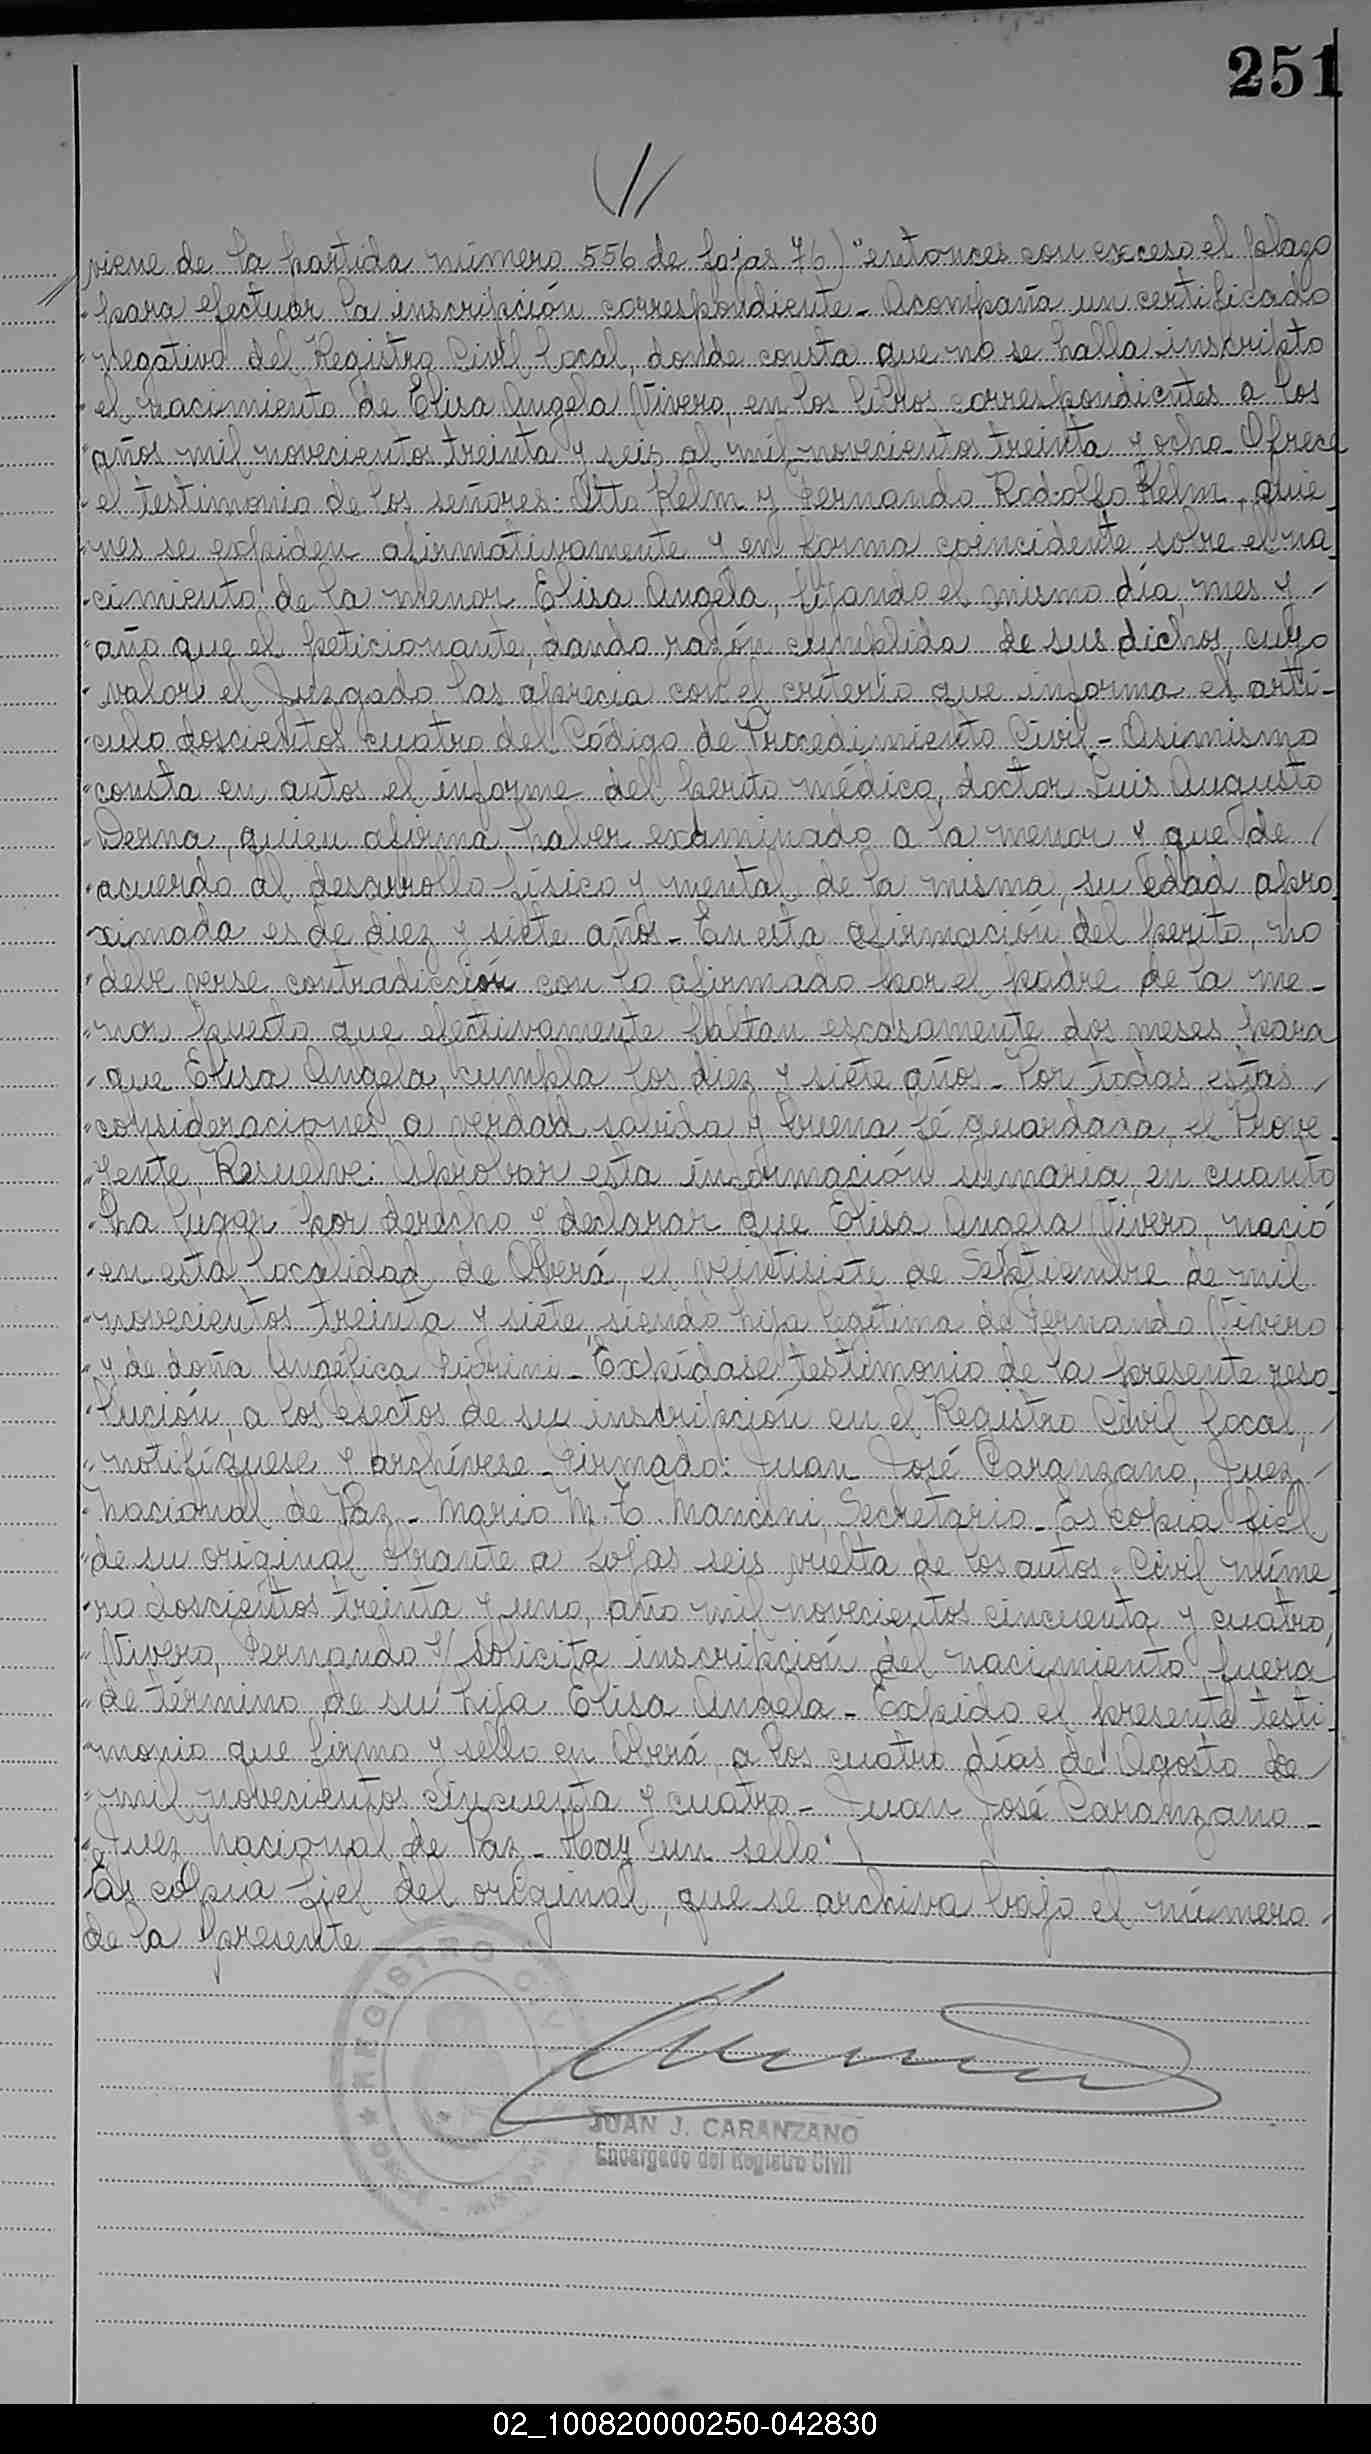 251
viene de la partida número 556 de fojas 76) "entonces con exceso el plazo
"para efectuar la inscripción correspondiente - Acompaña un certificado
"negativo del Registro Civil local, donde consta que no se halla inscripto
"el nacimiento de Elisa Angela Vivero, en los libros correspondientes a los
"años mil novecientos treinta y seis al mil novecientos treinta y ocho - Ofrece
"el testimonio de los señores: Otto Kelm y Fernando Rodolfo Kelm, quie-
"nes se expiden afirmativamente y en forma coincidente sobre el na-
"cimiento de la menor Elisa Angela, fijando el mismo día, mes y
"año que el peticionante, dando razón cumplida de sus dichos, cuyo
"valor el Juzgado las aprecia con el criterio que informa el artí-
"culo doscientos cuatro del Código de Procedimiento Civil - Asimismo
"consta en autos el informe del perito médico, doctor Luis Augusto
"Derna, quien afirma haber examinado a la menor y que de
"acuerdo al desarrollo físico y mental de la misma, su edad apro
"ximada es de diez y siete años - En esta afirmación del perito, no
"debe verse contradicción con lo afirmado por el padre de la me-
"nor puesto que efectivamente faltan escasamente dos meses para
"que Elisa Angela, cumpla los diez y siete años - Por todas estas
"consideraciones, a verdad sabida y buena fé guardada, el Prove-
"yente, Resuelve: Aprobar esta información sumaria, en cuanto
"ha lugar por derecho y declarar que Elisa Angela Vivero, nació
"en esta localidad de Oberá, el veintisiete de Septiembre de mil
"novecientos treinta y siete siendo hija legítima de Fernando Vivero
"y de doña Angélica Fiorini - Expídase testimonio de la presente reso-
"lución, a los efectos de su inscripción en el Registro Civil local,
"notifíquese y archívese - Firmado: Juan José Caranzano, Juez
"Nacional de Paz - Mario M. E. Mancini, Secretario - Es copia fiel
"de su original obrante a fojas seis vuelta de los autos: Civil núme-
"ro doscientos treinta y uno, año mil novecientos cincuenta y cuatro,
"Vivero, Fernando S/ solicita inscripción del nacimiento fuera
"de término de su hija Elisa Angela - Expido el presente testi-
"monio que firmo y sello en Oberá, a los cuatro días de Agosto de
"mil novecientos cincuenta y cuatro - Juan José Caranzano -
"Juez Nacional de Paz - Hay un sello".
Es copia fiel del original, que se archiva bajo el número
de la presente
REGISTRO CIVIL
JUAN J. CARANZANO
Encargado del Registro Civil
02_100820000250-042830